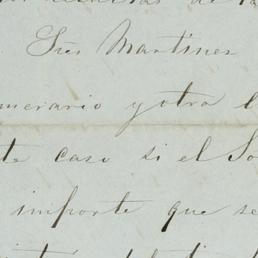 de
Sres Martinez
merario y otra l
te caso si el So
importe que se